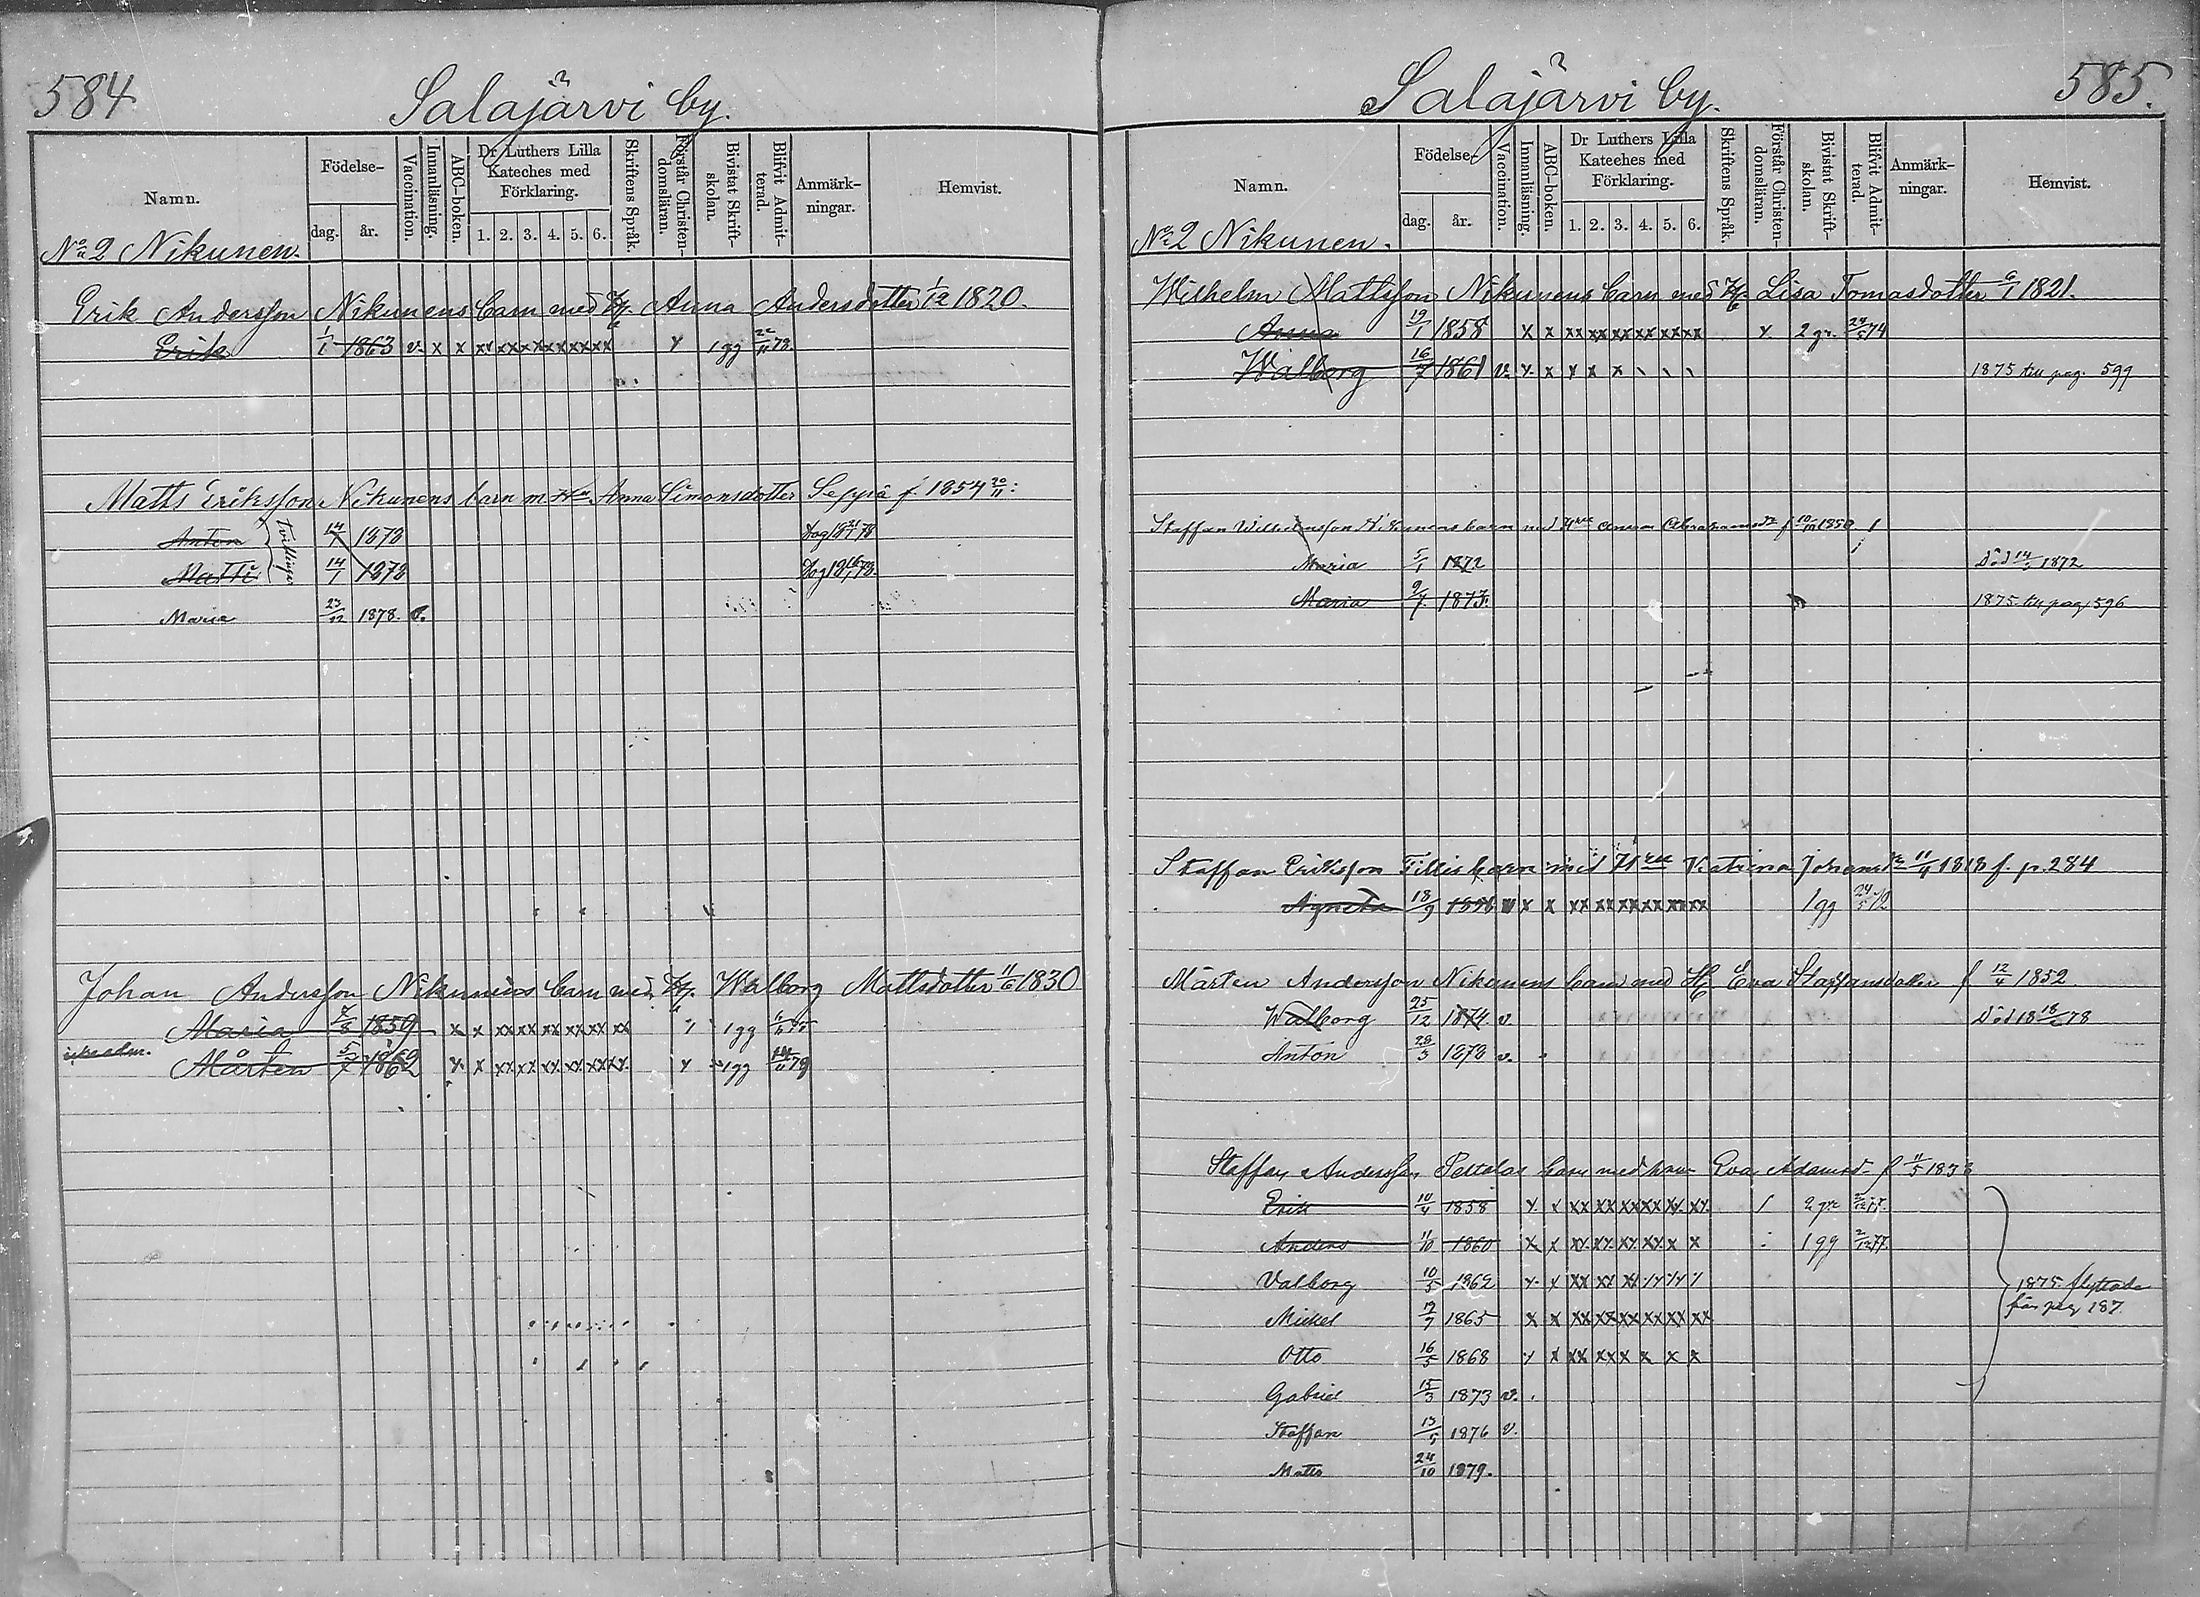 584
Salajärvi by.
Namn.
Födelse-
dag.
år.
Vaccination.
Innanläsning.
ABC-boken.
Dr Luthers Lilla
Kateches med
Förklaring.
1. 2. 3. 4. 5. 6.
Skriftens Språk.
Förstår Christen-
domsläran.
Bivistat Skrift-
skolan.
Blifvit Admit-
terad.
Anmärk-
ningar.
Hemvist.
No 2 Nikunen.
Erik Andersson Nikunens barn med H. Anna Andersdotter 1/12 1820.
Erik 1/1 1863 v. x x xx xx xx xx xx xx x 1 gg 22/11 78
Matts Eriksson Nikunens barn m. Hu. Anna Simonsdotter Seppä f. 1854 20/11:
Anton 14/1 1878
Matti 14/1 1878
Maria 23/12 1878. v.
Johan Andersson Nikunens barn med H. Walborg Mattsdotter 11/6 1830
Maria 1859 x x xx xx xx xx xx xx 1 gg
Mårten 1862 x x xx xx xx xx xx xx x 1 gg
585.
Salajärvi by.
Namn.
Födelse-
dag.
år.
Vaccination.
Innanläsning.
ABC-boken.
Dr Luthers Lilla
Kateches med
Förklaring.
1. 2. 3. 4. 5. 6.
Skriftens Språk.
Förstår Christen-
domsläran.
Bivistat Skrift-
skolan.
Blifvit Admit-
terad.
Anmärk-
ningar.
Hemvist.
No 2 Nikunen.
Wilhelm Mattsson Nikunens barn med H. Lisa Tomasdotter 6/1 1821.
Anna 19/1 1858 x x xx xx xx xx xx xx x. 2 gr. 74
Walborg 16/7 1861 v. x x x x x 1875 till pag. 599
Staffan Wilhelmsson Nikunens barn med Hu Abrahamsdr f 1850
Maria 5/1 1872 Död 1872
Maria 9/7 1873. 1875 till pag 596
Staffan Eriksson Tillis barn med Hu Katrina Johansdr 11/4 1818 f. p. 284
Agneta 18/9 x x xx xx xx xx xx xx 1 gg
Mårten Andersson Nikunens barn med H Eva Staffansdotter f 12/4 1852
Walborg 25/12 1874. v. Död 78
Anton 28/3 1878 v.
Staffan Andersson Peltolas barn med hu Eva Adamsd. f 11/5 1833
Erik 10/4 1858 x x xx xx xx xx xx xx 2 gr 77
Anders 11/10 1860 x x xx xx xx xx x x 1 gg 2/12 77
Valborg 10/5 1862
Mickel 19/7 1865 x x xx xx xx xx xx xx
Otto 16/5 1868
1875 flyttade
från pag 187
Gabriel 15/3 1873 v.
Staffan 13/5 1876 v.
Matts 24/10 1879.